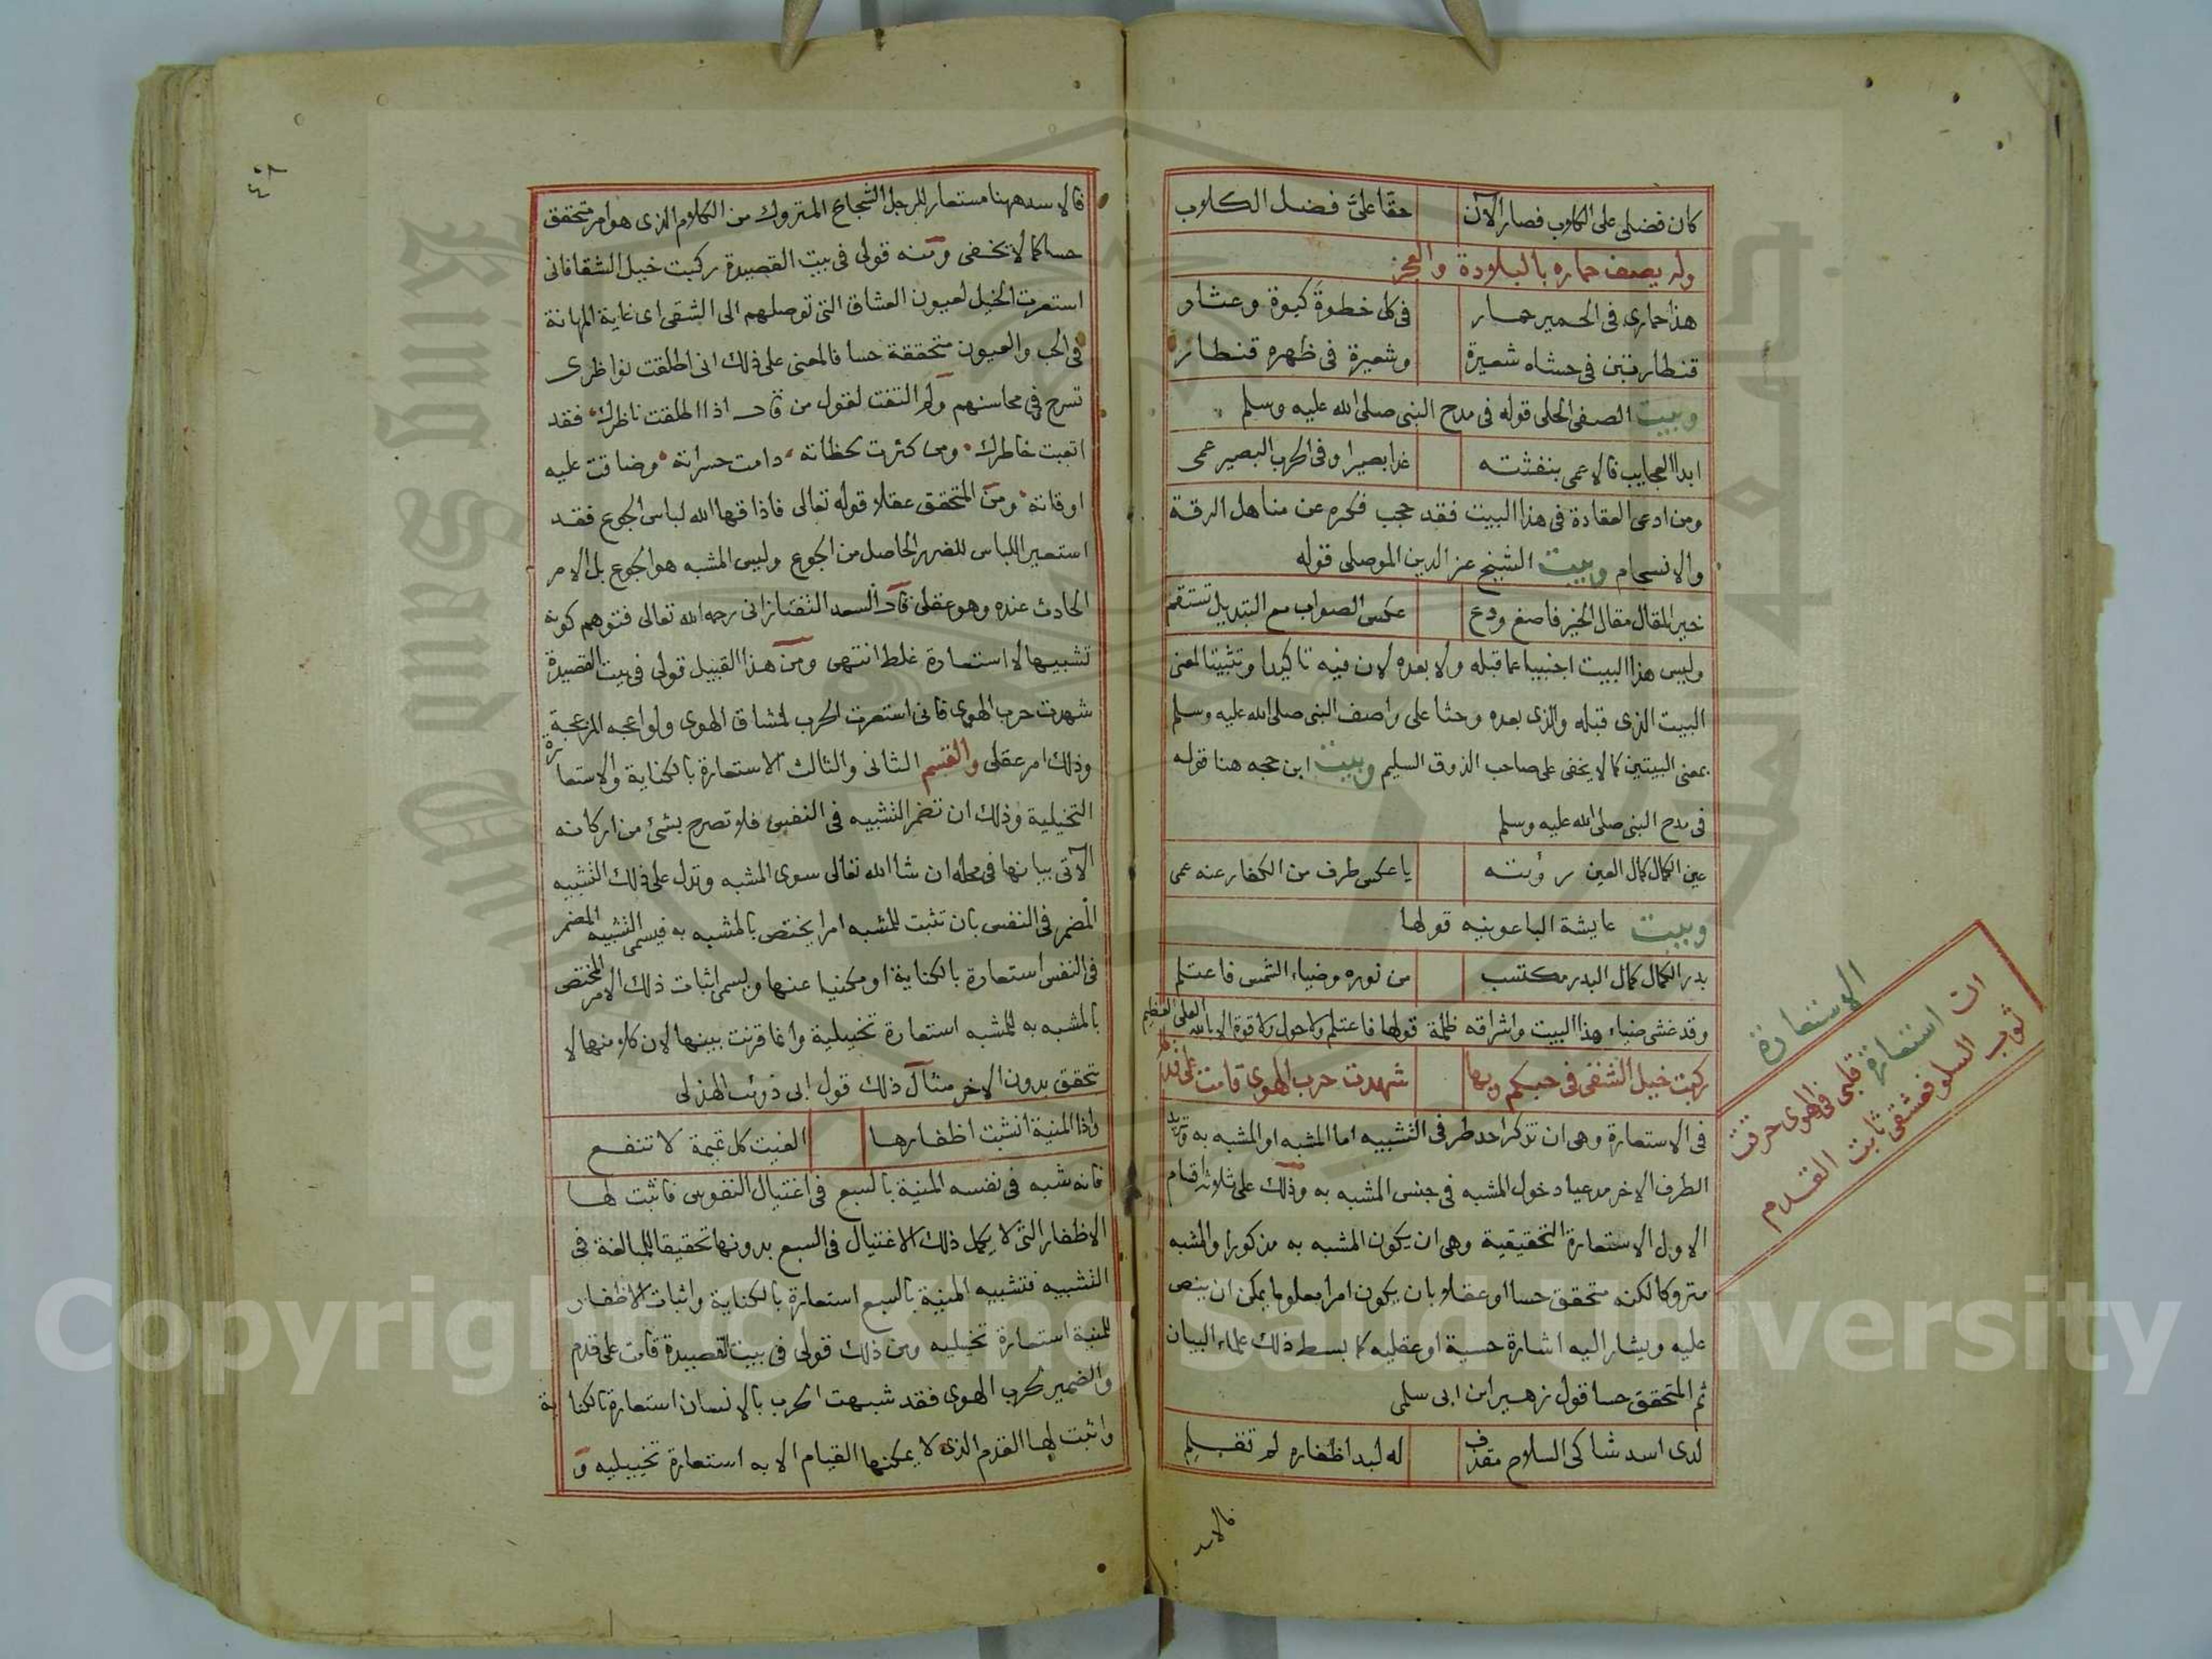 كان فضلى على الكلاب فصار الآن حقا علىّ فضل الكلاب
وله يصف حماره بالبلادة والعجز
هذا حمارى فى الحمير حمار فى كل خطوة كبوة وعثار
قنطار تبن فى حشاه شعيرة وشعيرة فى ظهره قنطار
وبيت الصفى الحلى قوله فى مدح النبى صلى الله عليه وسلم
ابدا العجايب فالاعمى بنفثته غدا بصيرا وفى الحرب البصير عمى
ومن ادعى العقادة فى هذا البيت فقد حجب فكره عن مناهل الرقة
والانسجام وبيت الشيخ عز الدين الموصلى قوله
خير المقال مقال الخير فاصغ ودع عكس الصواب مع التبديل تستقم
وليس هذا البيت اجنبيا عما قبله ولا بعده لان فيه تاكيدا وتثبيتا لمعنى
البيت الذى قبله والذى بعده وحثا على واصف النبى صلى الله عليه وسلم
بمعنى البيتين كما لا يخفى على صاحب الذوق السليم وبيت ابن حجه هنا قوله
فى مدح النبى صلى الله عليه وسلم
عين الكمال كمال العين رؤيته يا عكس طرف من الكفار عنه عمى
وبيت عايشة الباعونيه قولها
بدر الكمال كمال البدر مكتسب من نوره وضياء الشمس فاعتلم
وقد غشى ضياء هذا البيت واشراقه ظلمة قولها فاعتلم ولا حول ولا قوة الا بالله العلى العظيم
ركبت خيل الشقى فى حبكم وبها شهدت حرب الهوى قامت على قدم
فى الاستعارة وهى ان تذكر احد طرفى التشبيه اما المشبه او المشبه به وتريد
الطرف الاخر مدعيا دخول المشبه فى جنس المشبه به وذلك على ثلاثة اقسام
الاول الاستعارة التحقيقية وهى ان يكون المشبه به مذكورا والمشبه
متروكا لكنه متحقق حسا او عقلا بان يكون امرا معلوما يمكن ان ينص
عليه ويشار اليه اشارة حسية او عقليه كما بسط ذلك علماء البيان
ثم المتحقق حسا قول زهير ابن ابى سلمى
لدى اسد شاكى السلاح مقذف له لبد اظفاره لم تقلم
فالاسد
الاستعارة
ات استعارة قلبى فى الهوى حرقت
ثوب السلو فعشقى ثابت القدم
فالاسد ههنا مستعار للرجل الشجاع المتروك من الكلام الذى هو امر متحقق
حسا كما لا يخفى ومنه قولى فى بيت القصيدة ركبت خيل الشقا فانى
استعرت الخيل لعيون العشاق التى توصلهم الى الشقى اى غاية المهانة
فى الحب والعيون متحققة حسا فالمعنى على ذلك انى اطلقت نواظرى
تسرح فى محاسنهم ولم التفت لقول من قال اذا اطلقت ناظرك فقد
اتعبت خاطرك ومن كثرت لحظاته دامت حسراته وضاقت عليه
اوقاته ومن المتحقق عقلا قوله تعالى فاذاقها الله لباس الجوع فقد
استعير اللباس للضرر الحاصل من الجوع وليس المشبه هو الجوع بل الامر
الحادث عنده وهو عقلى قال السعد التفتازانى رحمه الله تعالى فتوهم كونه
تشبيها لا استعارة غلط انتهى ومن هذا القبيل قولى فى بيت القصيدة
شهدت حرب الهوى فانى استعرت الحرب لمشاق الهوى ولواعجه المزعجة
وذلك امر عقلى والقسم الثانى والثالث الاستعارة بالكناية والاستعارة
التخيلية وذلك ان تضمر التشبيه فى النفس فلا تصرح بشئ من اركانه
الآتى بيانها فى محله ان شا الله تعالى سوى المشبه وتدل على ذلك التشبيه
المضمر فى النفس بان تثبت للمشبه امرا يختص بالمشبه به فيسمى التشبيه المضمر
فى النفس استعارة بالكناية او مكنيا عنها ويسمى اثبات ذلك الامر المختص
بالمشبه به للمشبه استعارة تخييلية وانما قرنت بينها لان كلا منها لا
تحقق بدون الاخر مثال ذلك قول ابى ذوئب الهذلى
واذا المنية انشبت اظفارها الفيت كل تميمة لا تنفع
فانه شبه فى نفسه المنية بالسبع فى اغتيال النفوس فاثبت لها
الاظفار التى لا يكمل ذلك الاغتيال فى السبع بدونها تحقيقا للمبالغة فى
التشبيه فتشبيه المنية بالسبع استعارة بالكناية واثبات الاظفار
للمنية استعارة تخييليه ومن ذلك قولى فى بيت القصيدة قامت على قدم
والضمير لحرب الهوى فقد شبهت الحرب بالانسان استعارة بالكناية
واثبت لها القدم الذى لا يمكنها القيام الا به استعارة تخييليه و
Copyright © King Saud University